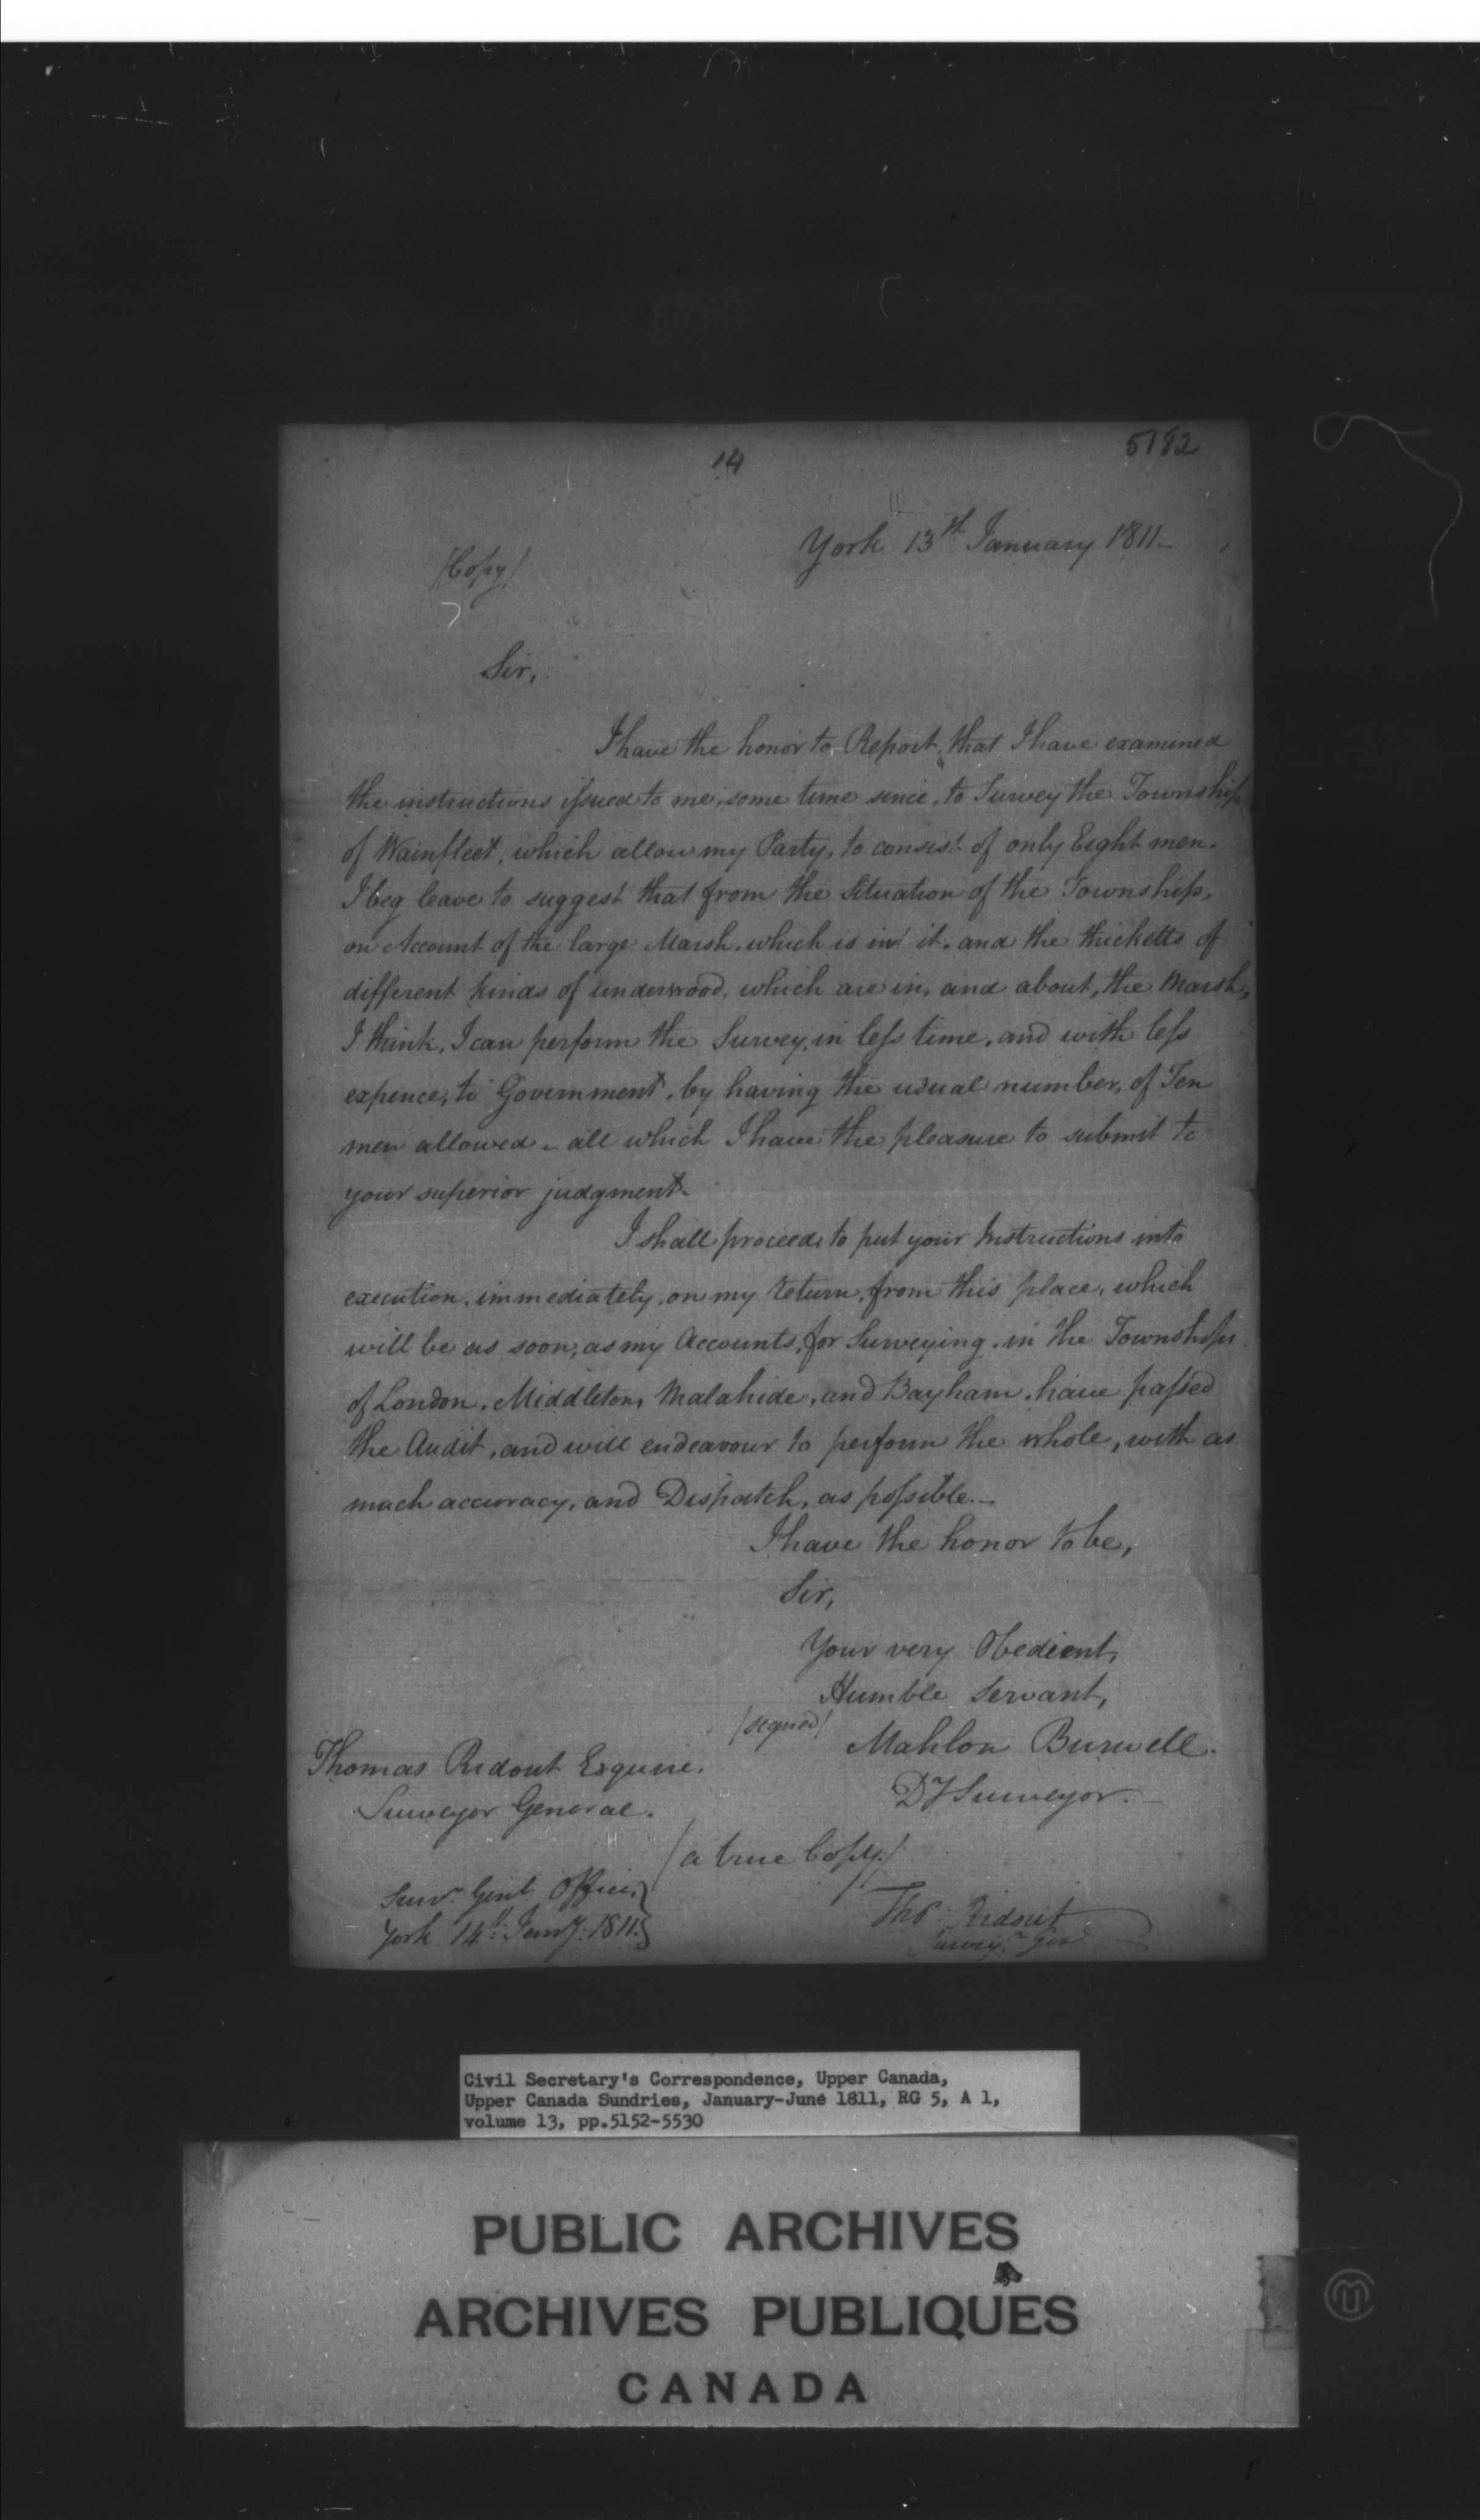 14
5182
York 13th January 1811-
/Copy/
Sir,
I have the honor to Report, that I have examined
the instructions issued to me, some time since, to Survey the Township
of Wainfleet, which allow my Party, to consist of only Eight men.
I beg leave to suggest that from the Situation of the Township,
on Account of the large Marsh, which is in it, and the thicketts of
different kinds of underwood, which are in, and about, the Marsh,
I think, I can perform the Survey, in less time, and with less
expence, to Government, by having the usual number, of Ten
men allowed - all which I have the pleasure to submit to
your superior judgment.
I shall proceed to put your Instructions into
execution, immediately, on my return, from this place, which
will be as soon, as my Accounts, for Surveying, in the Townships
of London, Middleton, Malahide, and Bayham, have passed
the Audit, and will endeavour to perform the whole, with as
much accuracy, and Dispatch, as possible.-
I have the honor to be,
Sir,
Your very Obedient,
Humble Servant,
/signed/
Mahlon Burwell.
Dy Surveyor.-
Thomas Ridout Esquire.
Surveyor General.
/a true Copy./
Surv. Genl. Office,
York 14th Jany. 1811.
Thos. Ridout
Surveyr. Genl
Civil Secretary's Correspondence, Upper Canada,
Upper Canada Sundries, January-June 1811, RG 5, A 1,
volume 13, pp.5152-5530
PUBLIC ARCHIVES
ARCHIVES PUBLIQUES
CANADA